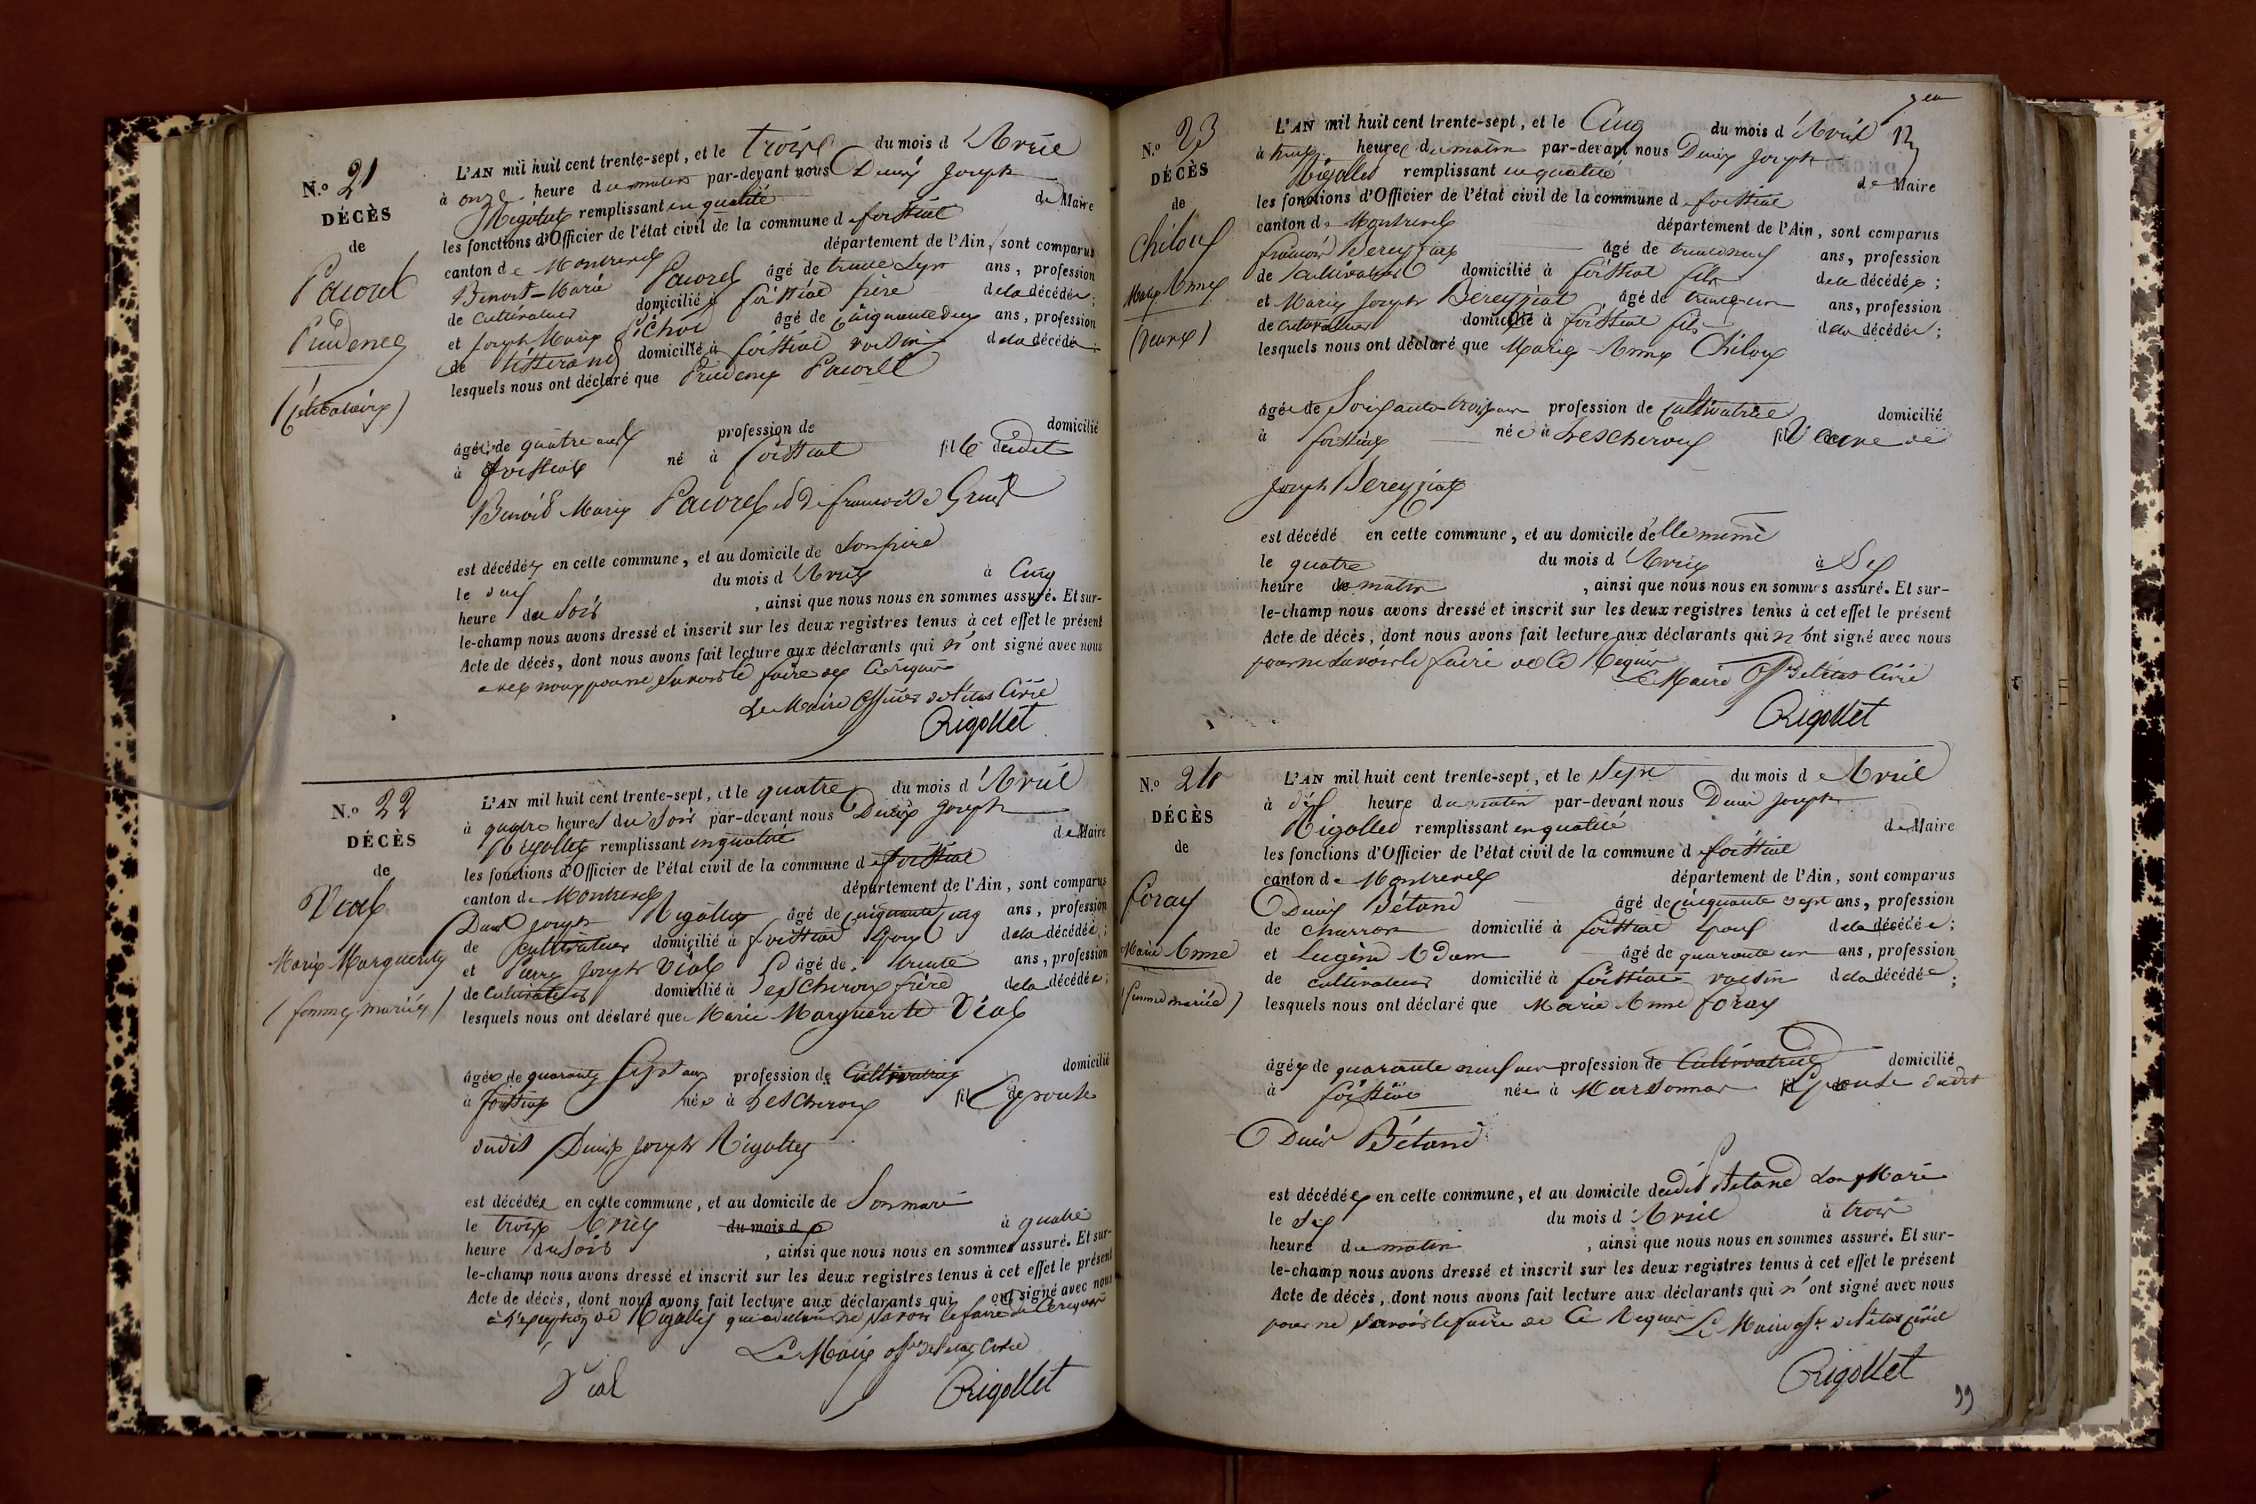 N.o 21
DÉCÈS
de
Pacorel
Prudence
(Célibataire)
L'AN mil huit cent trente-sept, et le trois du mois d'Avril
à onze heure du matin par-devant nous Denis Joseph
Rigollet remplissant en qualité de Maire
les fonctions d'Officier de l'état civil de la commune de foissiat
canton de Montrevel département de l'Ain, sont comparus
Benoit-Marie Pacorel âgé de trente ans, profession
de cultivateur domicilié à foissiat père de la décédée ;
et Joseph Marie Pichod âgé de cinquante deux ans, profession
de tisserand domicilié à foissiat voisin de la décédée ;
lesquels nous ont déclaré que Prudence Pacorel
âgée de quatre ans profession de domicilié
à foissiat né à foissiat fille dudit
Benoit Marie Pacorel et de françoise
est décédée en cette commune, et au domicile de son père
le deux du mois d'Avril à Cinq
heure du Soir, ainsi que nous nous en sommes assuré. Et sur-
le-champ nous avons dressé et inscrit sur les deux registres tenus à cet effet le présent
Acte de décès, dont nous avons fait lecture aux déclarants qui n'ont signé avec nous
avec nous pour ne savoir le faire de ce requis
Le Maire officier de l'état Civil
Rigollet
N.o 22
DÉCÈS
de
Vial
Marie Marguerite
(femme mariée)
L'AN mil huit cent trente-sept, et le quatre du mois d'Avril
à quatre heures du Soir par-devant nous Denis Joseph
Rigollet remplissant en qualité de Maire
les fonctions d'Officier de l'état civil de la commune de foissiat
canton de Montrevel département de l'Ain, sont comparus
Denis Joseph Rigollet âgé de cinquante cinq ans, profession
de Cultivateur domicilié à foissiat époux de la décédée ;
et Pierre Joseph Vial âgé de trente ans, profession
de Cultivateur domicilié à Lescheroux frère de la décédée ;
lesquels nous ont déclaré que Marie Marguerite Vial
âgée de quarante sept ans profession de Cultivatrice domicilié
à foissiat née à Lescheroux Epouse
dudit Denis Joseph Rigollet
est décédée en cette commune, et au domicile de Son mari
le trois Avril du mois d à quatre
heure du Soir, ainsi que nous nous en sommes assuré. Et sur-
le-champ nous avons dressé et inscrit sur les deux registres tenus à cet effet le présent
Acte de décès, dont nous avons fait lecture aux déclarants qui ont signé avec nous
à l'exception de Rigollet qui a déclaré ne savoir le faire de ce requis
Le Maire off.er de l'état Civil
Vial Rigollet
N.o 23
DÉCÈS
de
Chiloux
Marie Anne
(veuve)
L'AN mil huit cent trente-sept, et le Cinq du mois d'Avril
à heures du matin par-devant nous Denis Joseph
Rigollet remplissant en qualité de Maire
les fonctions d'Officier de l'état civil de la commune de foissiat
canton de Montrevel département de l'Ain, sont comparus
françois Bereyziat âgé de trente neuf ans, profession
de Cultivateur domicilié à foissiat fils de la décédée ;
et Marie Joseph Bereyziat âgé de trente un ans, profession
de cultivateur domicilié à foissiat fils de la décédée ;
lesquels nous ont déclaré que Marie Anne Chiloux
âgée de Soixante-trois ans profession de Cultivatrice domicilié
à foissiat née à Lescheroux Veuve de
Joseph Bereyziat
est décédé en cette commune, et au domicile d'elle même
le quatre du mois d'Avril à Six
heure du matin, ainsi que nous nous en sommes assuré. Et sur-
le-champ nous avons dressé et inscrit sur les deux registres tenus à cet effet le présent
Acte de décès, dont nous avons fait lecture aux déclarants qui n'ont signé avec nous
pour ne savoir le faire de ce Requis
Le Maire off.er de l'état Civil
Rigollet
N.o 24
DÉCÈS
de
foray
Marie Anne
(femme mariée)
L'AN mil huit cent trente-sept, et le Sept du mois d Avril
à dix heure du matin par-devant nous Denis Joseph
Rigollet remplissant en qualité de Maire
les fonctions d'Officier de l'état civil de la commune de foissiat
canton de Montrevel département de l'Ain, sont comparus
Denis Bétand âgé de Cinquante sept ans, profession
de charron domicilié à foissiat époux de la décédée ;
et Eugène Adam âgé de quarante un ans, profession
de cultivateur domicilié à foissiat voisin de la décédée ;
lesquels nous ont déclaré que Marie Anne foray
âgée de quarante neuf ans profession de Cultivatrice domicilié
à foissiat née à Marsonnas Epouse dudit
Denis Bétand
est décédée en cette commune, et au domicile dudit Bétand Son Mari
le Six du mois d'Avril à trois
heure du matin, ainsi que nous nous en sommes assuré. Et sur-
le-champ nous avons dressé et inscrit sur les deux registres tenus à cet effet le présent
Acte de décès, dont nous avons fait lecture aux déclarants qui n'ont signé avec nous
pour ne savoir le faire de Ce Requis Le Maire off.r de l'état Civil
Rigollet